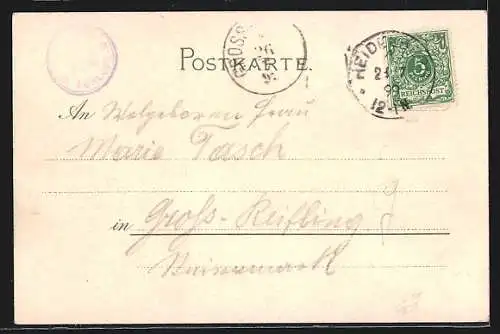 GROSS
26
POSTKARTE.
HEIDE
5
REICHSPOST
12-1N
An Wolgeboren Frau
Marie Tasch
in Gross-Reifling
Steiermark